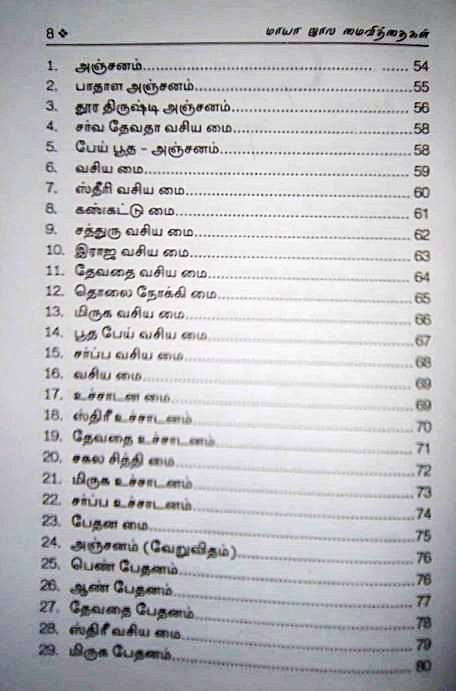 8 ❖ மாயா ஜால மைவித்தைகள்
1. அஞ்சனம் 54
2. பாதாள அஞ்சனம் 55
3. தூர திருஷ்டி அஞ்சனம் 56
4. சர்வ தேவதா வசிய மை 58
5. பேய் பூத - அஞ்சனம் 58
6. வசிய மை 59
7. ஸ்திரீ வசிய மை 60
8. கண்கட்டு மை 61
9. சத்துரு வசிய மை 62
10. இராஜ வசிய மை 63
11. தேவதை வசிய மை 64
12. தொலை நோக்கி மை 65
13. மிருக வசிய மை 66
14. பூத பேய் வசிய மை 67
15. சர்ப்ப வசிய மை 68
16. வசிய மை 69
17. உச்சாடன மை 69
18. ஸ்திரீ உச்சாடனம் 70
19. தேவதை உச்சாடனம் 71
20. சகல சித்தி மை 72
21. மிருக உச்சாடனம் 73
22. சர்ப்ப உச்சாடனம் 74
23. பேதன மை 75
24. அஞ்சனம் (வேறுவிதம்) 76
25. பெண் பேதனம் 76
26. ஆண் பேதனம் 77
27. தேவதை பேதனம் 78
28. ஸ்திரீ வசிய மை 79
29. மிருக பேதனம் 80